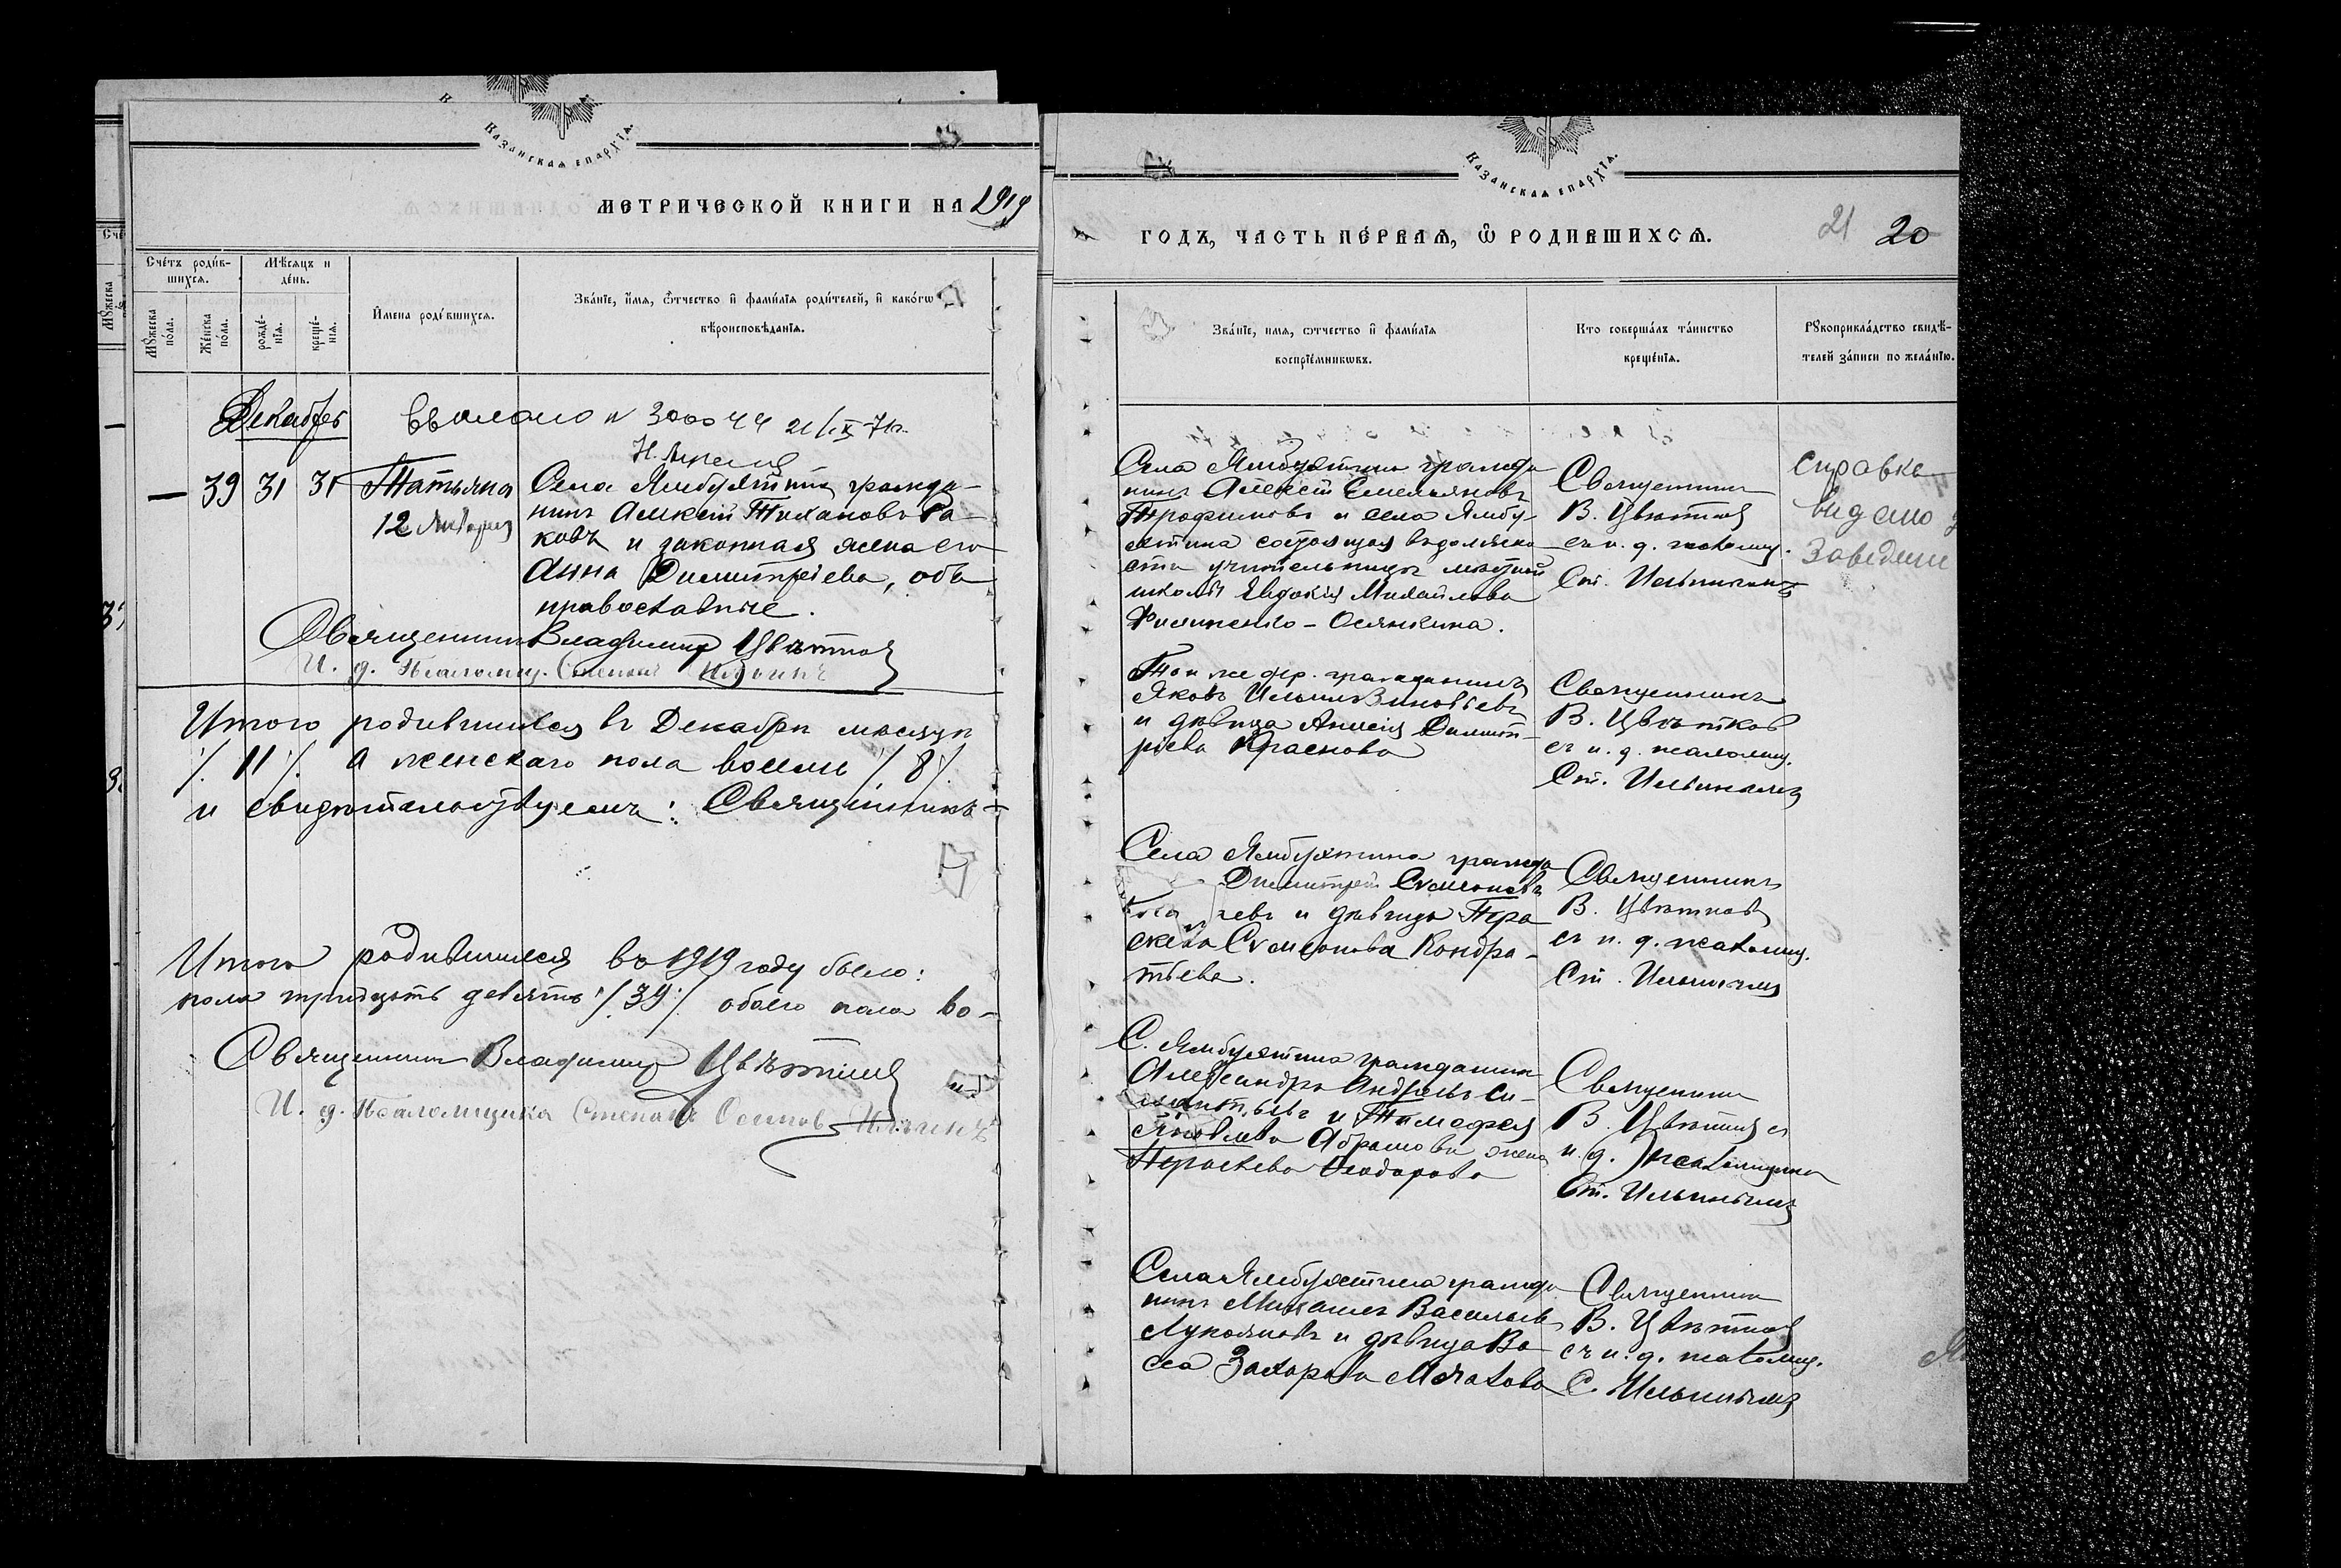 Казанская епархїѧ.
МЕТРИЧЕСКОЙ КНИГИ НА 1919
Счетъ роди́в-
шихсѧ.
Мѣсѧцъ и
де́нь.
Мꙋжеска
по́ла.
Же́нска
по́ла.
рожде́-
нїѧ.
креще́-
нїѧ.
И҆мена роди́вшихсѧ.
Зва́нїе, и҆́мѧ, ѻ҆́тчество и҆ фами́лїѧ роди́телей, и҆ како́гѡ
вѣроисповѣ́данїѧ.
Декабрь
21/IX-71г.
— 39 31 31 Татьяна
12 Января
Села Ямбухтина гражда-
нинъ Алексѣй Тихановъ Ра-
ковъ и законная жена его
Анна Димитріева, оба
православные.
Священникъ Владимир Цвѣтков
И. д. Псаломщ. Степанъ Ильинъ
Итого родившихся въ Декабрѣ мѣсяцѣ
/. 11 /. а женскаго пола восемь /. 8 /.
и свидѣтельствуемъ: Священникъ
Итого родившихся въ 1919 году было:
пола тридцать девять /. 39 /. обоего пола во-
Священникъ Владимир Цвѣтков
И. д. Псаломщика Степанъ Осипов Ильинъ
Казанская епархїѧ.
ГОДЪ, ЧАСТЬ ПЕ́РВАѦ, Ѽ РОДИВШИХСѦ.
21 20
Зва́нїе, имѧ, ѻтчество и҆ фами́лїѧ
воспрїе́мникѡвъ.
Кто соверша́лъ та́инство
креще́нїѧ.
Рꙋкоприкла́дство свидѣ́-
телей за́писи по жела́нїю.
Села Ямбухтина гражда
нинъ Алексѣй Емельяновъ
Трофимовъ и села Ямбу-
хтина состоящая въ должно
сти учительницы мѣстной
школы Евдокія Михайлова
Филипенко - Осянкина.
Священникъ
В. Цвѣтков
съ и. д. псаломщ.
Ст. Ильинымъ
справка
видано
Той же дер. гражданинъ
Яковъ Ильинъ Зиновьевъ
и дѣвица Анисія Димит-
ріева Краснова
Священникъ
В. Цвѣтков
съ и. д. псаломщ.
Ст. Ильинымъ
Села Ямбухтина гражда
Димитрей Симеоновъ
и дѣвица Пара
скева Симеонова Кондра-
тьева.
Священникъ
В. Цвѣтков
съ и. д. псаломщ.
Ст. Ильинымъ
С. Ямбухтина гражданин
Александръ Андреевъ Си-
и Тимофея
Яковлева Абрамова жена
Параскева Феодорова
Священникъ
В. Цвѣтков съ
и. д. псаломщика
Ст. Ильинымъ
Села Ямбухтина гражда
нинъ Михаилъ Васильевъ
Лукояновъ и дѣвица Ва
сса Захарова Мочалова
Священник
В. Цвѣтков
съ и. д. псаломщ.
С. Ильинымъ